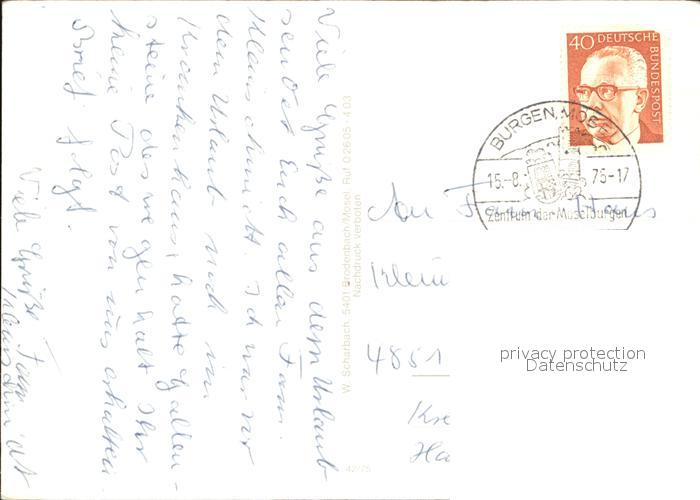 Viele Grüße aus dem Urlaub
sendet Euch allen Fam.
Kleinschmidt. Ich war vor
dem Urlaub noch im
Krankenhaus, hatte Gallen-
steine deswegen habt Ihr
keine Post von uns erhalten.
Brief folgt.
Viele Grüße Fam
Kleinschmidt
W. Scharbach, 5401 Brodenbach/Mosel, Ruf 0 26 05 - 4 03
Nachdruck verboten
42/75
40 DEUTSCHE BUNDESPOST
BURGEN, MOSEL
15.-8. 76-17
Zentrum der Moselburgen
An Fam. Hans
Klein
4851
Kre
Ha
privacy protection
Datenschutz